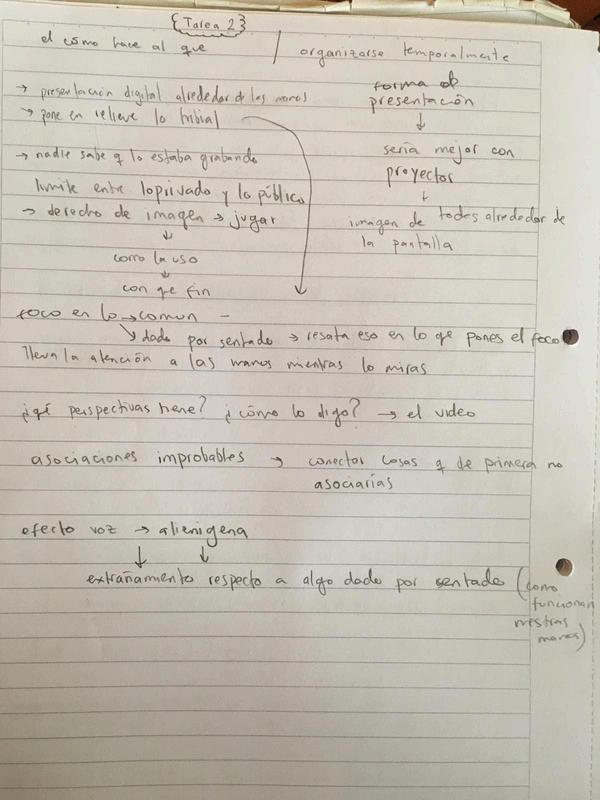 Tarea 2
el cómo hace al que / organizarse temporalmente
→ presentación digital alrededor d las manos
→ pone en relieve lo tribial
→ nadie sabe q lo estaba grabando
limite entre lo privado y lo público
→ derecho de imagen → jugar
↓
como la uso
↓
con que fin
forma d
presentación
↓
sería mejor con
proyector
↓
imagen de todes alrededor de
la pantalla
foco en lo → comun -
↘ dado por sentado → resata eso en lo qe pones el foco
lleva la atención a las manos mientras lo miras
¿qé perspectivas tiene? ¿cómo lo digo? → el video
asociaciones improbables → conectar cosas q de primera no
asociarías
efecto voz → alienigena
↓ ↓
extrañamiento respecto a algo dado por sentado (como
funcionan
nestras
manos)